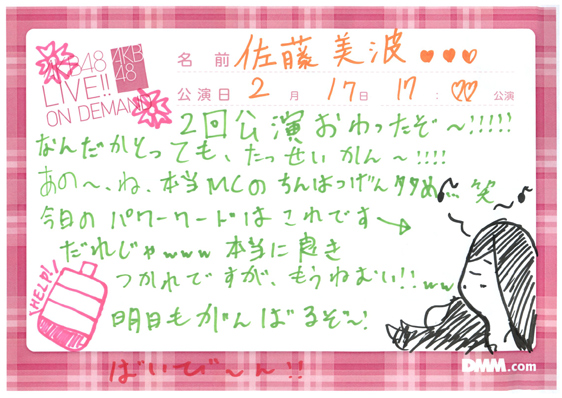 AKB48 AKB48
LIVE!!
ON DEMAND
名前 佐藤美波
公演日 2月17日 17:♡♡公演
2回公演おわったぞ〜!!!!!
なんだかとっても、たっせいかん〜!!!!
あの〜、ね、本当MCのちんはつげん多め… 笑
今日のパワーワードはこれです→
だれじゃwww 本当に良き
つかれてですが、もうねむい!!ww
HELP!!
明日もがんばるぞ〜!
DMM.com
ばいび〜ん!!